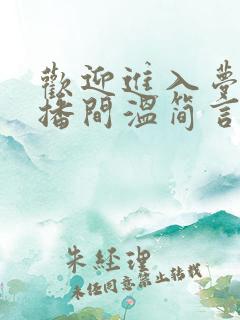 歡迎進入夢
播間溫简言
朱經理
未任同意禁止转载